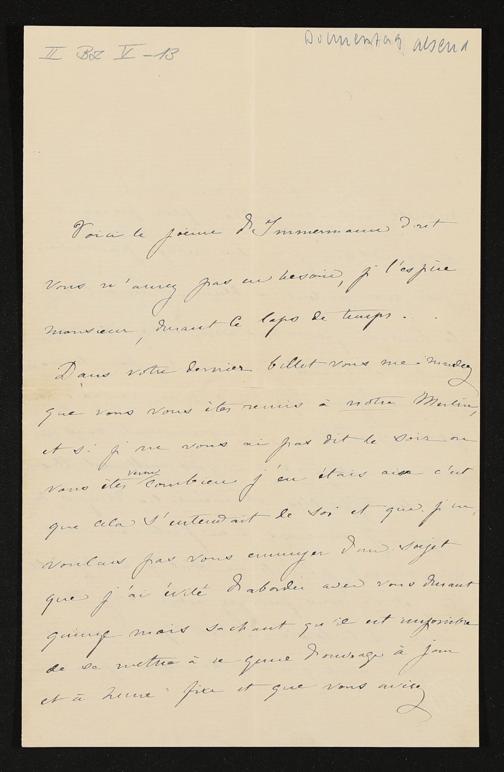 II BZ V-13
Donnerstag abend
Voici le poème d'Immermann dont
vous n'aurez pas eu besoin, je l'espère
monsieur, durant ce laps de temps.
Dans votre dernier billet vous me mandez
que vous vous êtes remis à notre Merlin,
et si je ne vous ai pas dit le soir où
vous êtes venu combien j'en étais aise c'est
que cela s'entendait de soi et que je ne
voulais pas vous ennuyer d'un sujet
que j'ai évité d'aborder avec vous durant
quinze mois sachant qu'il est impossible
de se mettre à ce genre d'ouvrage à jour
et à heure fixe et que vous aviez